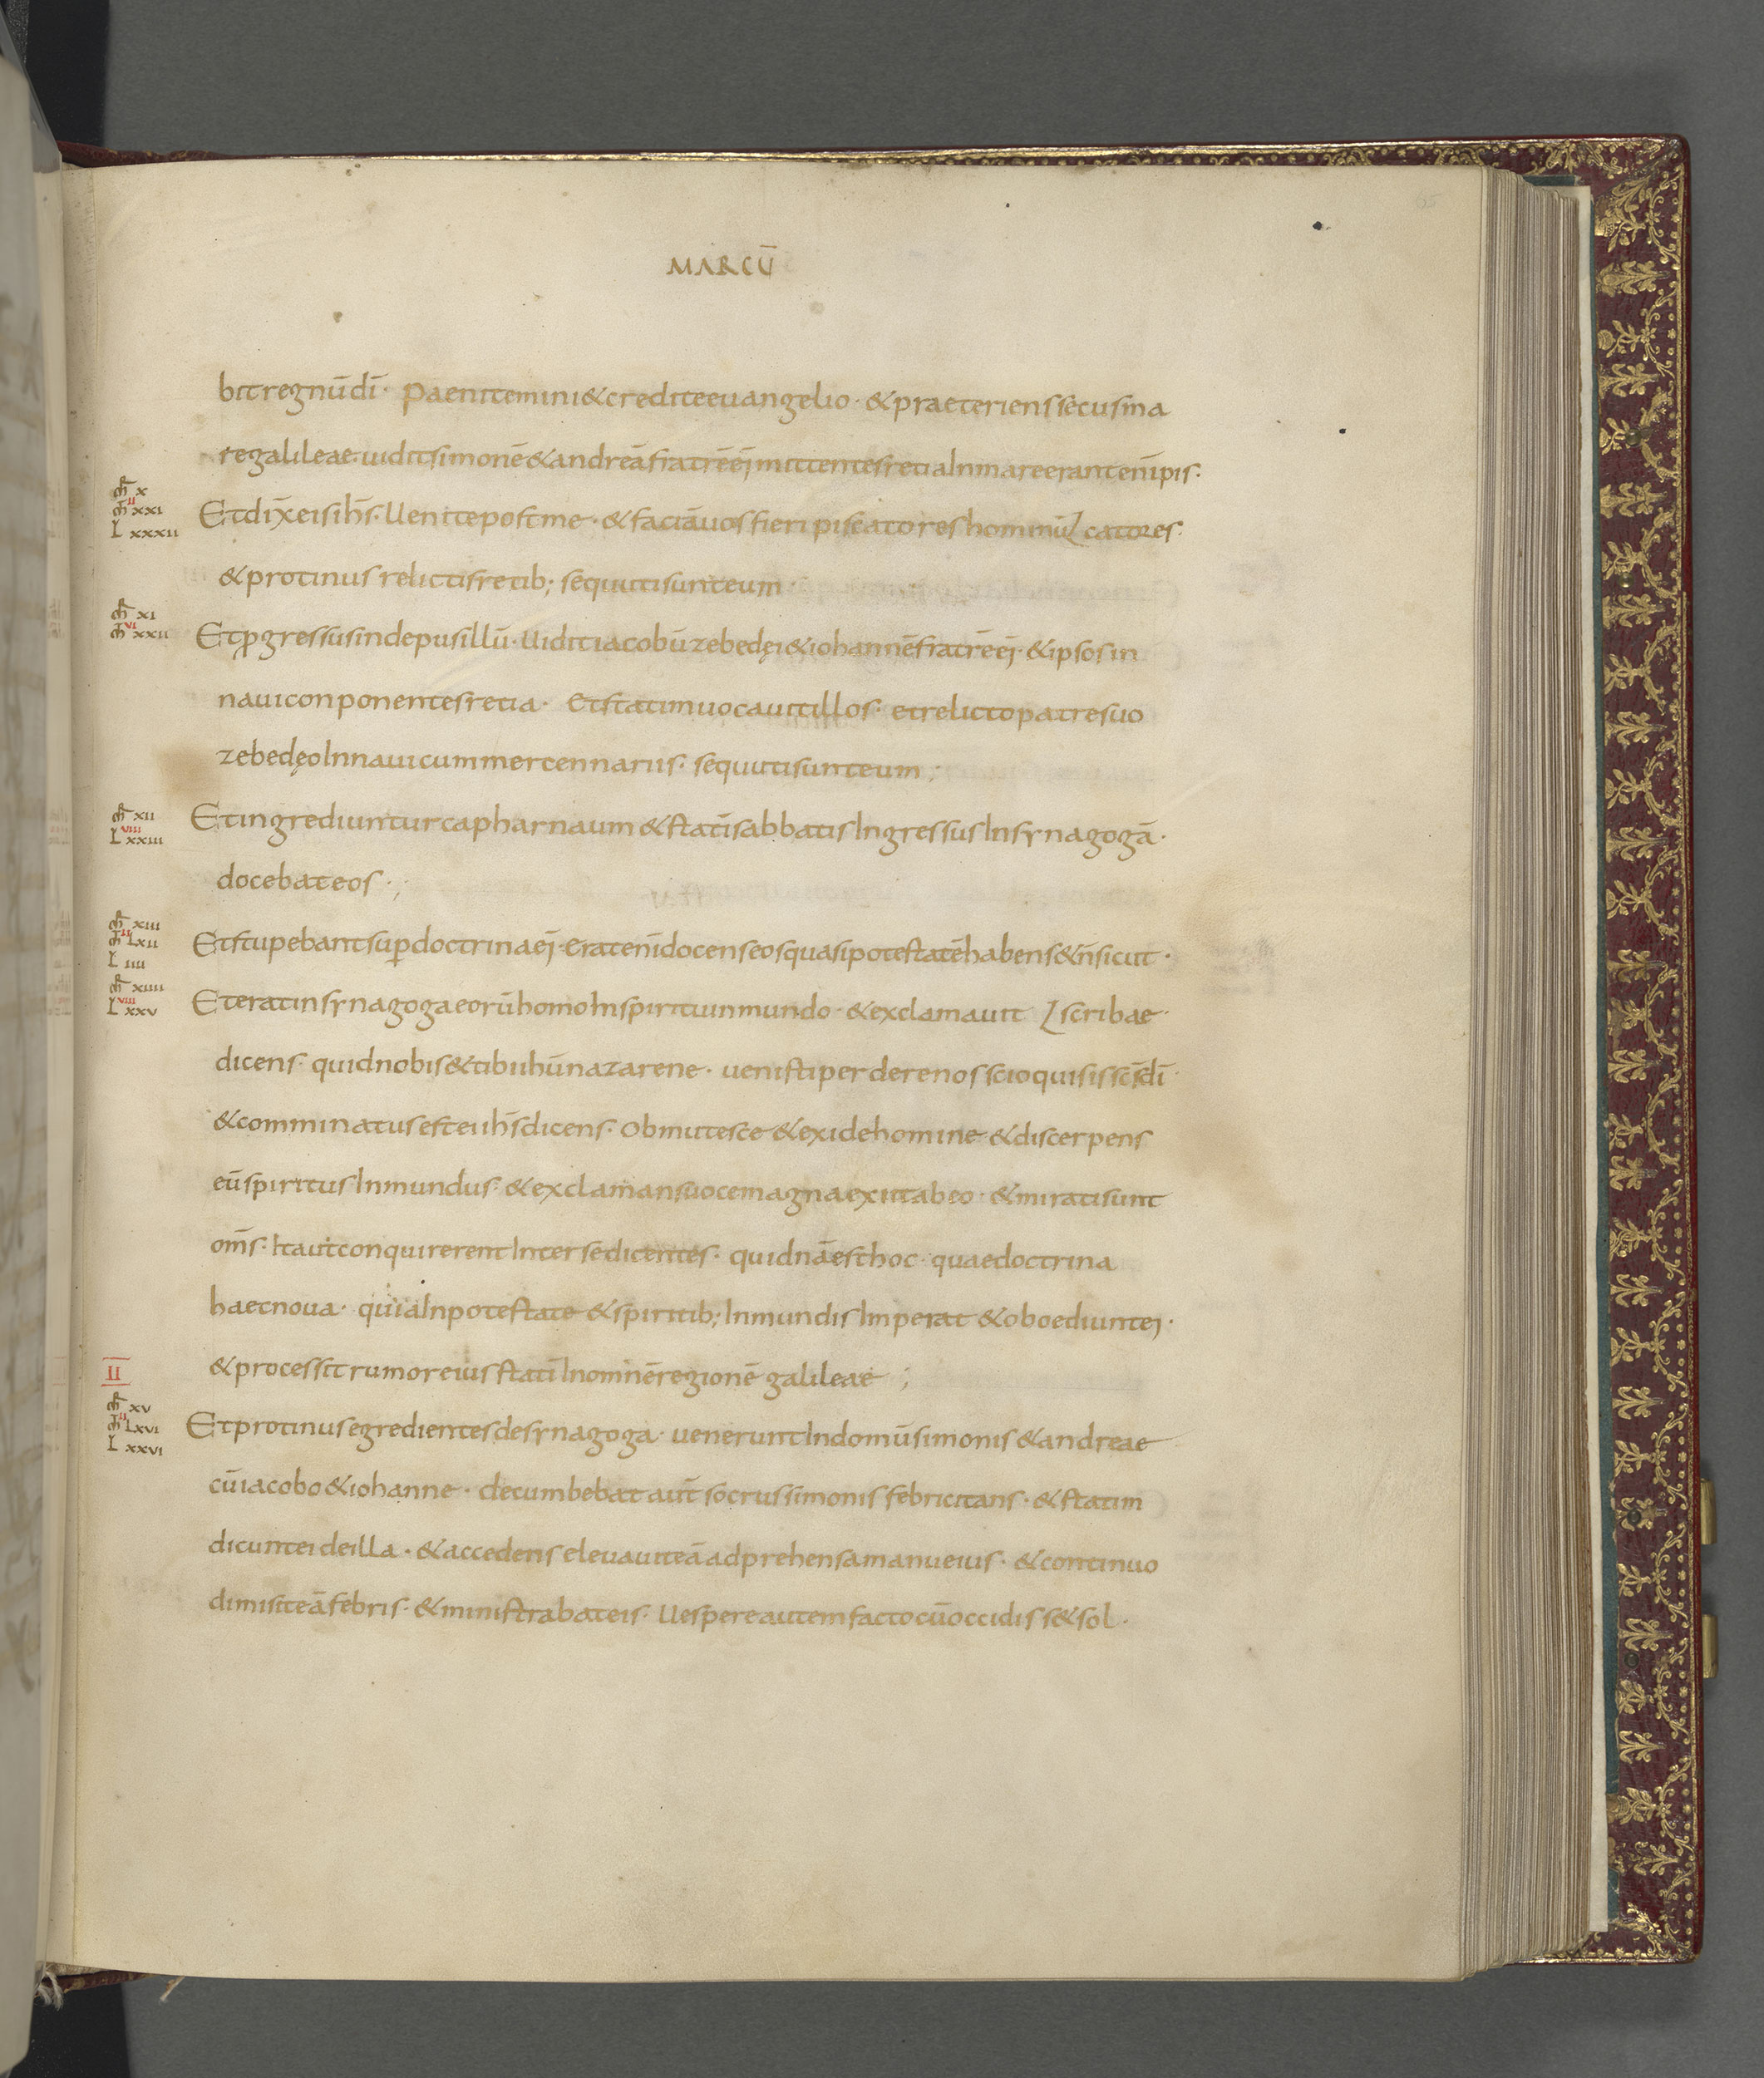 MARCŪ
bit regnū dī · Paenitemini & credite euangelio · & praeteriens secus ma
re galileae uidit simonē & andreā fratrē ei mittentes retia In mare erant enī pis ·
m̄r x
m̄t II xxi
L xxxii
Et dix̄ eis ih̄s · Uenite post me · & faciā uos fieri piscatores hominū catores ·
& protinus relictis retib; sequuti sunt eum ·
m̄r xi
m̄t VI xxii
Et ꝓgressus inde pusillū · Uidit iacobū zebedęi & iohannē fratrē ei · & ipsos in
naui conponentes retia · Et statim uocauit illos · et relicto patre suo
zebedęo In naui cum mercennariis · sequuti sunt eum ;
m̄r xii
L VIII xxiii
Et ingrediuntur capharnaum & statī sabbatis Ingressus In synagogā ·
docebat eos · ;
m̄r xiii
m̄t II Lxii
L iiii
Et stupebant sup̄ doctrina ei · erat enī docens eos quasi potestatē habens & n̄ sicut ·
m̄r xiiii
L VIII xxv
Et erat in synagoga eorū homo In spiritu inmundo · & exclamauit scribae ·
dicens · quid nobis & tibi ihū nazarene · uenisti perdere nos scio qui sis sc̄s dī ·
& comminatus est ei ih̄s dicens · Obmutesce & exi de homine & discerpens
eū spiritus Inmundus · & exclamans uoce magna exiit ab eo · & mirati sunt
om̄s · Ita ut conquirerent Inter se dicentes · quidnā est hoc · quae doctrina
haec noua · quia In potestate & spiritib; Inmundis Imperat & oboediunt ei ·
& processit rumor eius statī In omnē regionē galileae ;
II
m̄r xv
m̄t II Lxvi
L xxvi
Et protinus egredientes de synagoga · uenerunt In domū simonis & andreae
cū iacobo & iohanne · decumbebat aut̄ socrus simonis febricitans · & statim
dicunt ei de illa · & accedens eleuauit eā adprehensa manu eius · & continuo
dimisit eā febris · & ministrabat eis · Uespere autem facto cū occidiss& sol ·